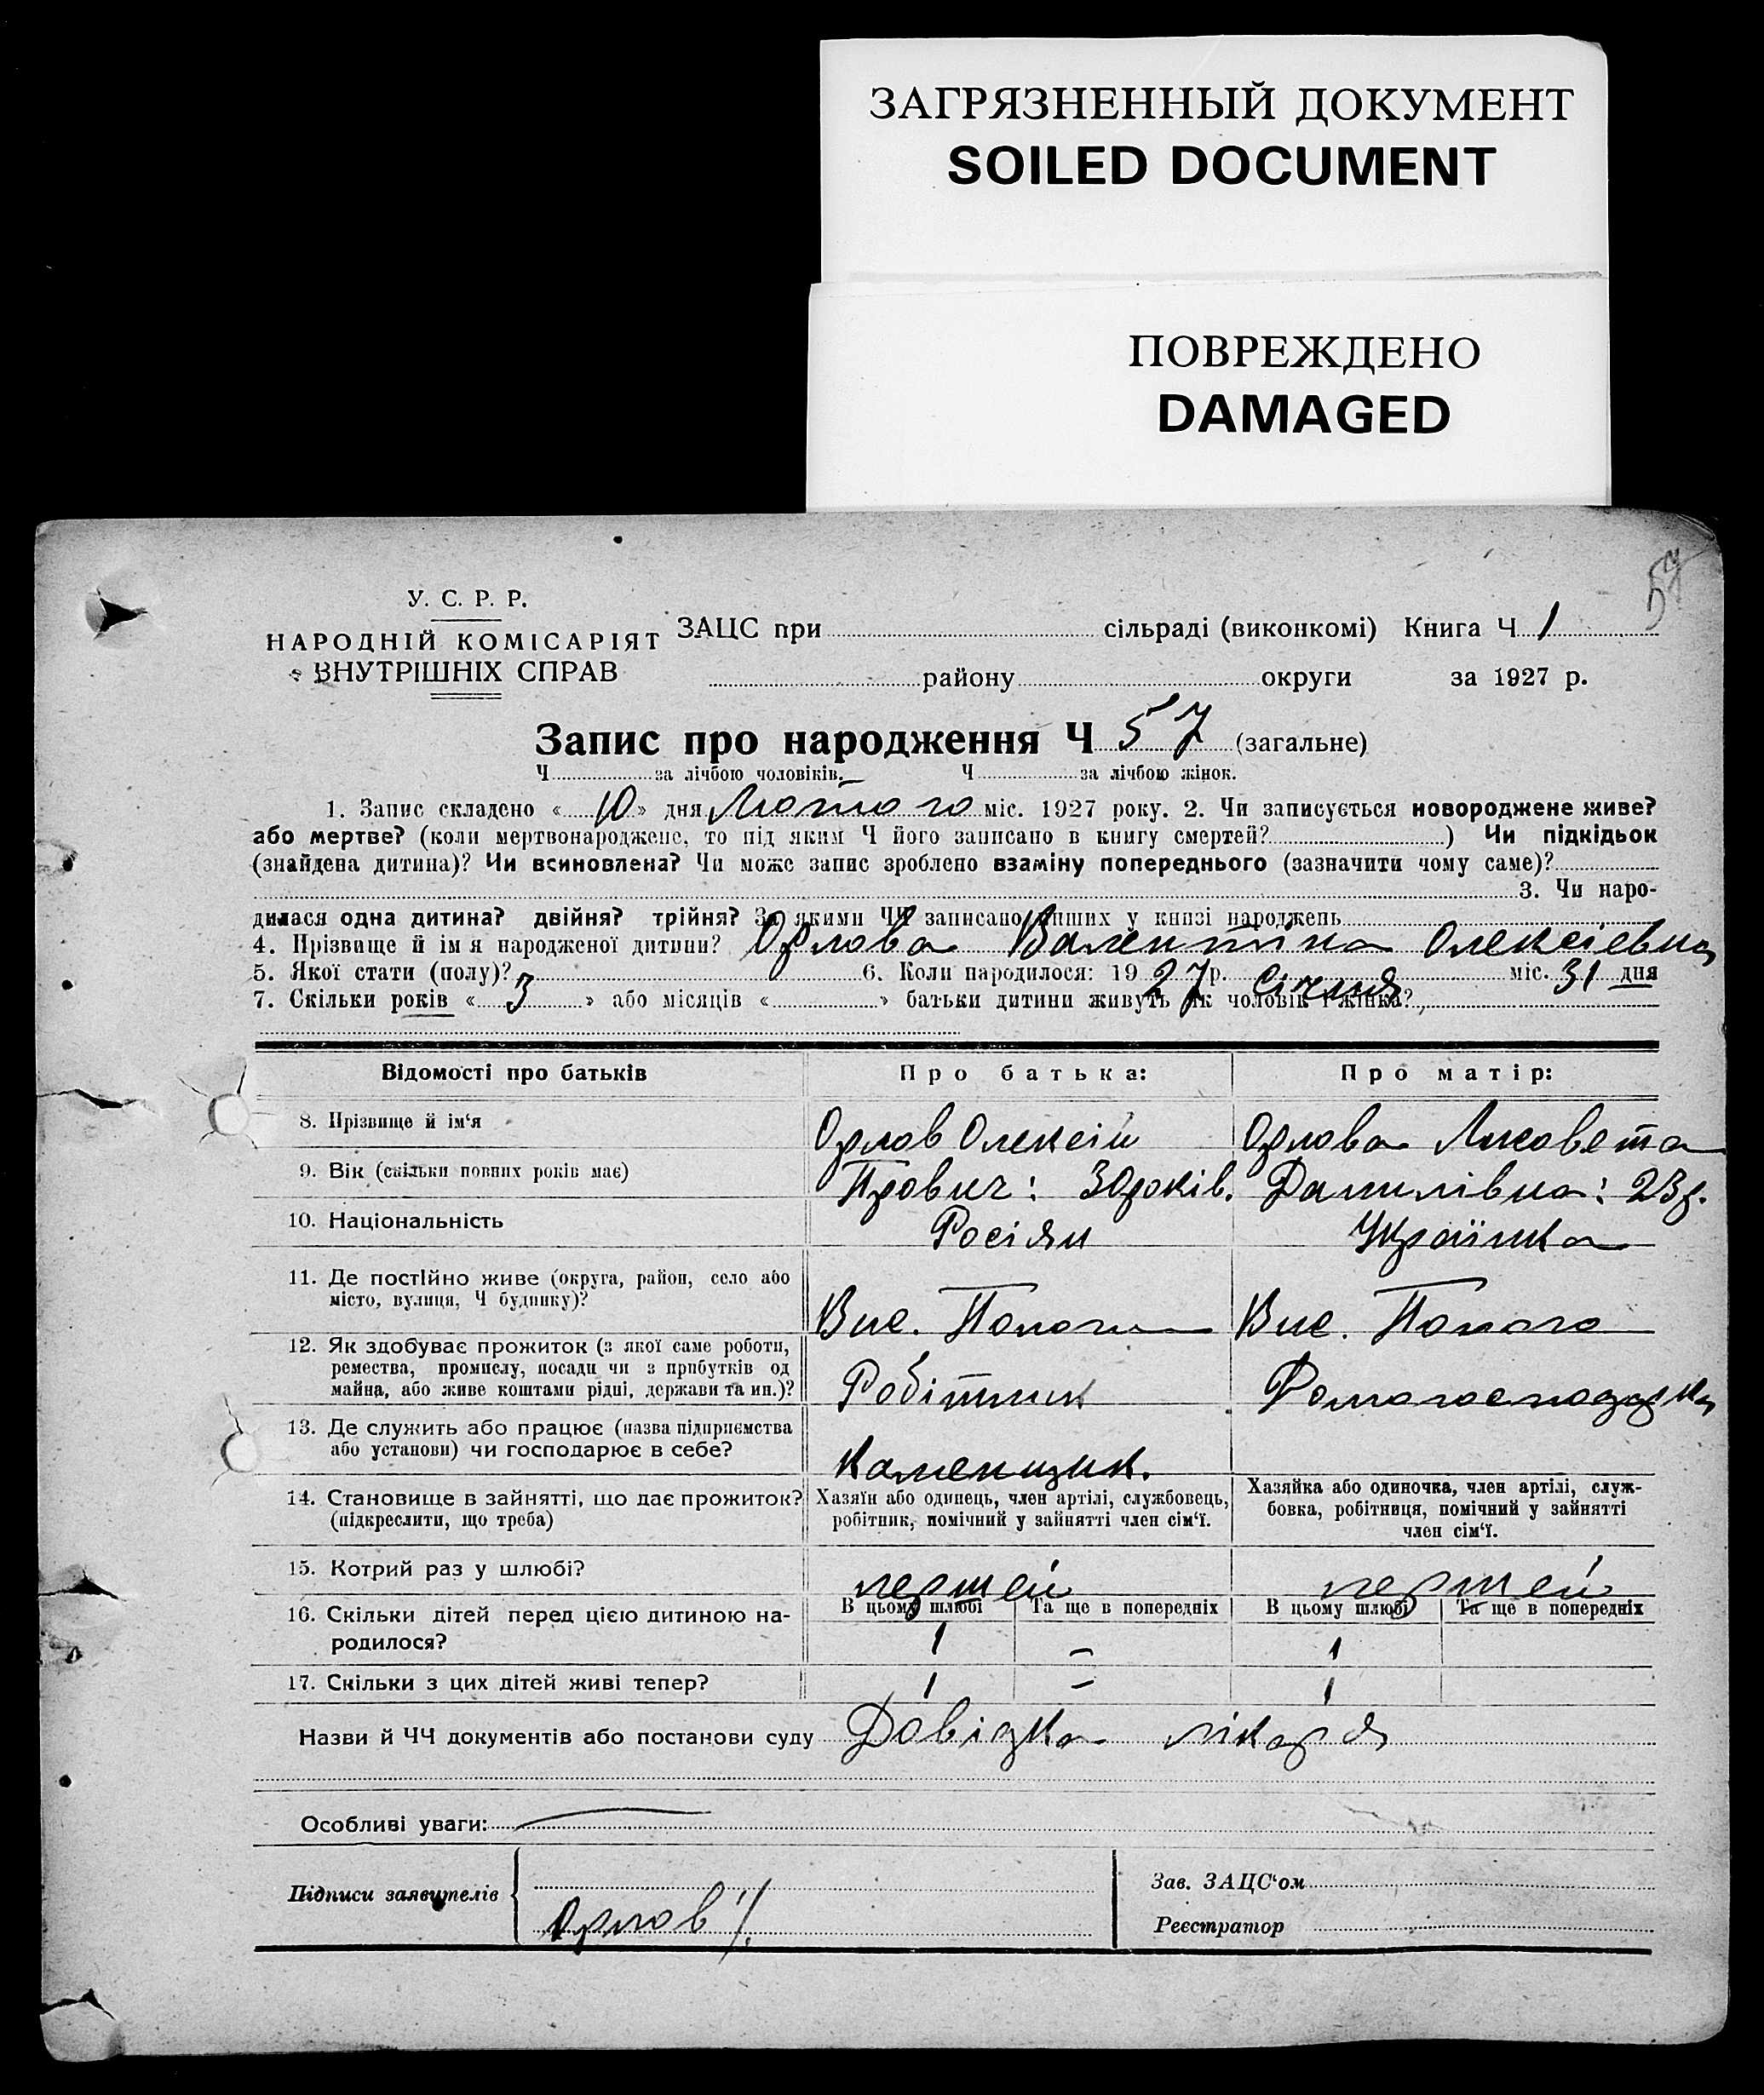 ЗАГРЯЗНЕННЫЙ ДОКУМЕНТ
SOILED DOCUMENT
ПОВРЕЖДЕНО
DAMAGED
У. С. Р. Р.
НАРОДНІЙ КОМІСАРІЯТ
ВНУТРІШНІХ СПРАВ
ЗАЦС при сільраді (виконкомі) Книга Ч 1
району округи за 1927 р.
Запис про народження Ч 57 (загальне)
Ч за лічбою чоловіків. Ч за лічбою жінок.
1. Запис складено « 10 » дня Лютого міс. 1927 року. 2. Чи записується новороджене живе?
або мертве? (коли мертвонароджене, то під яким Ч його записано в книгу смертей? ) Чи підкідьок
(знайдена дитина)? Чи всиновлена? Чи може запис зроблено взаміну попереднього (зазначити чому саме)?
3. Чи наро-
дилася одна дитина? двійня? трійня? За якими ЧЧ записано инших у книзі народжень
4. Прізвище й ім я народженої дитини? Орлова Валентіна Олексіевна
5. Якої стати (полу)? 6. Коли народилося: 19 27 р. Січня міс. 31 дня
7. Скільки років « 3 » або місяців « » батьки дитини живуть як чоловік і жінка?
Відомості про батьків Про батька: Про матір:
8. Прізвище й ім‘я Орлов Олексій Орлова Лисовета
9. Вік (скільки повних років має) 30 років. Данилівна: 23 р.
10. Національність Росіян Українка
11. Де постійно живе (округа, район, село або
місто, вулиця, Ч будинку)? Вис. Пологи Вис. Полого
12. Як здобуває прожиток (з якої саме роботи,
ремества, промислу, посади чи з прибутків од
майна, або живе коштами рідні, держави та ин.)? Робітник
13. Де служить або працює (назва підприємства
або установи) чи господарює в себе? Каменщик.
14. Становище в зайнятті, що дає прожиток?
(підкреслити, що треба)
Хазяїн або одинець, член артілі, службовець,
робітник, помічний у зайнятті член сім‘ї.
Хазяйка або одиночка, член артілі, служ-
бовка, робітниця, помічний у зайнятті
член сім‘ї.
15. Котрий раз у шлюбі? першей першей
В цьому шлюбі Та ще в попередніх В цьому шлюбі Та ще в попередніх
16. Скільки дітей перед цією дитиною на-
родилося? 1 – 1
17. Скільки з цих дітей живі тепер? 1 – 1
Назви й ЧЧ документів або постанови суду Довідка лікаря
Особливі уваги:
Підписи заявителів Орлов
Зав. ЗАЦС‘ом
Реєстратор